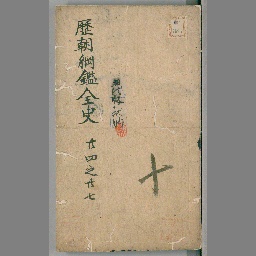 歷朝綱鑑全史
廿四之廿七
十